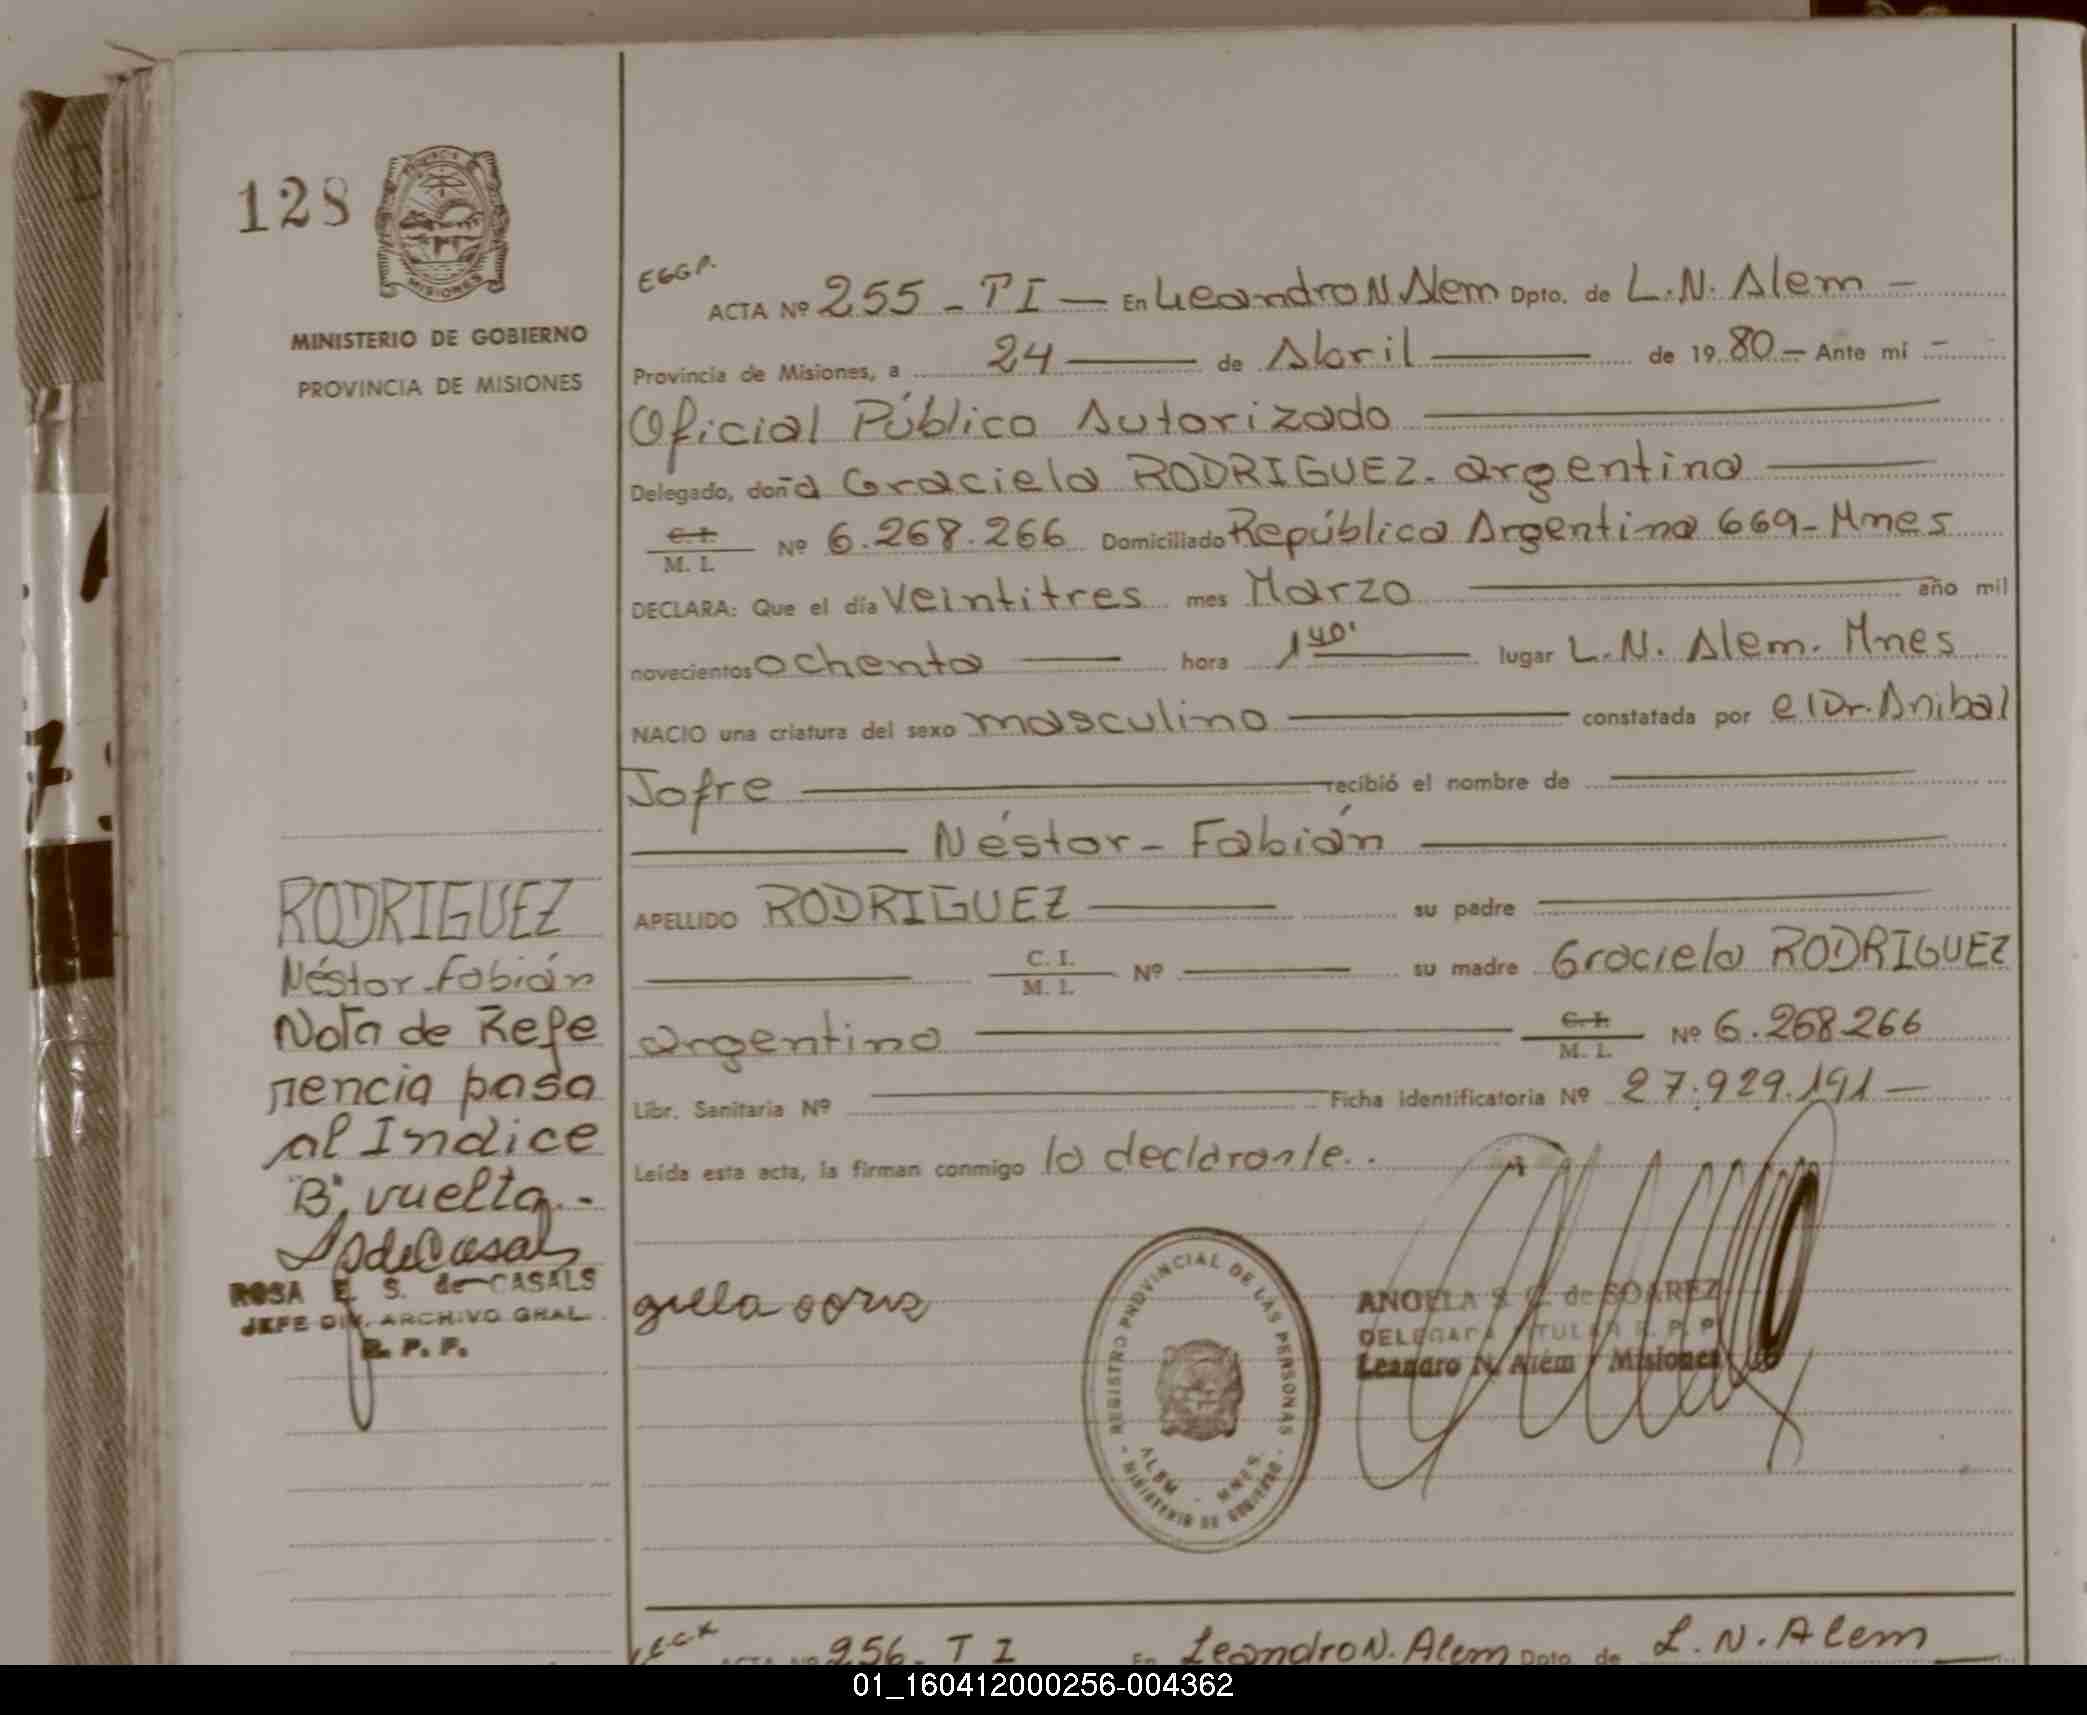 128
MISIONES
MINISTERIO DE GOBIERNO
PROVINCIA DE MISIONES
RODRIGUEZ
Néstor-Fabián
Nota de Refe
rencia pasa
al Indice
"B", vuelta.-
ROSA E. S. de CASALS
JEFE DIV. ARCHIVO GRAL.
R. P. P.
EGGP.
ACTA Nº 255 - TI — En Leandro N Alem Dpto. de L.N. Alem -
Provincia de Misiones, a 24 — de Abril — de 19 80.- Ante mí -
Oficial Público Autorizado
Delegado, doña Graciela RODRIGUEZ. argentina
C. I. M. I. Nº 6.268.266 Domiciliado República Argentina 669-Mnes
DECLARA: Que el día Veintitres mes Marzo año mil
novecientos ochenta — hora 1 40' lugar L.N. Alem. Mnes
NACIO una criatura del sexo masculino constatada por el Dr. Anibal
Jofre recibió el nombre de
Néstor - Fabián
APELLIDO RODRIGUEZ su padre
C. I. M. I. Nº su madre Graciela RODRIGUEZ
argentina C. I. M. I. Nº 6.268.266
Libr. Sanitaria Nº Ficha identificatoria Nº 27.929.191 —
Leída esta acta, la firman conmigo la declarante..
REGISTRO PROVINCIAL DE LAS PERSONAS
ALEM - MNES.
- MINISTERIO DE GOBIERNO -
DELEGADA TITULAR R. P. P.
Leandro N. Alem - Misiones
ACTA Nº 256. TI En Leandro N. Alem Dpto. de L. N. Alem
01_160412000256-004362